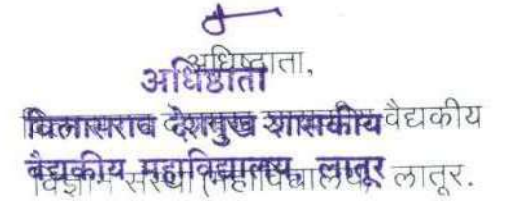 अधिष्ठाता,
अधिष्ठाता
विलासराव देशमुख शासकीय वैद्यकीय
वैद्यकीय महाविद्यालय, लातूर
विज्ञान संस्था लातूर.